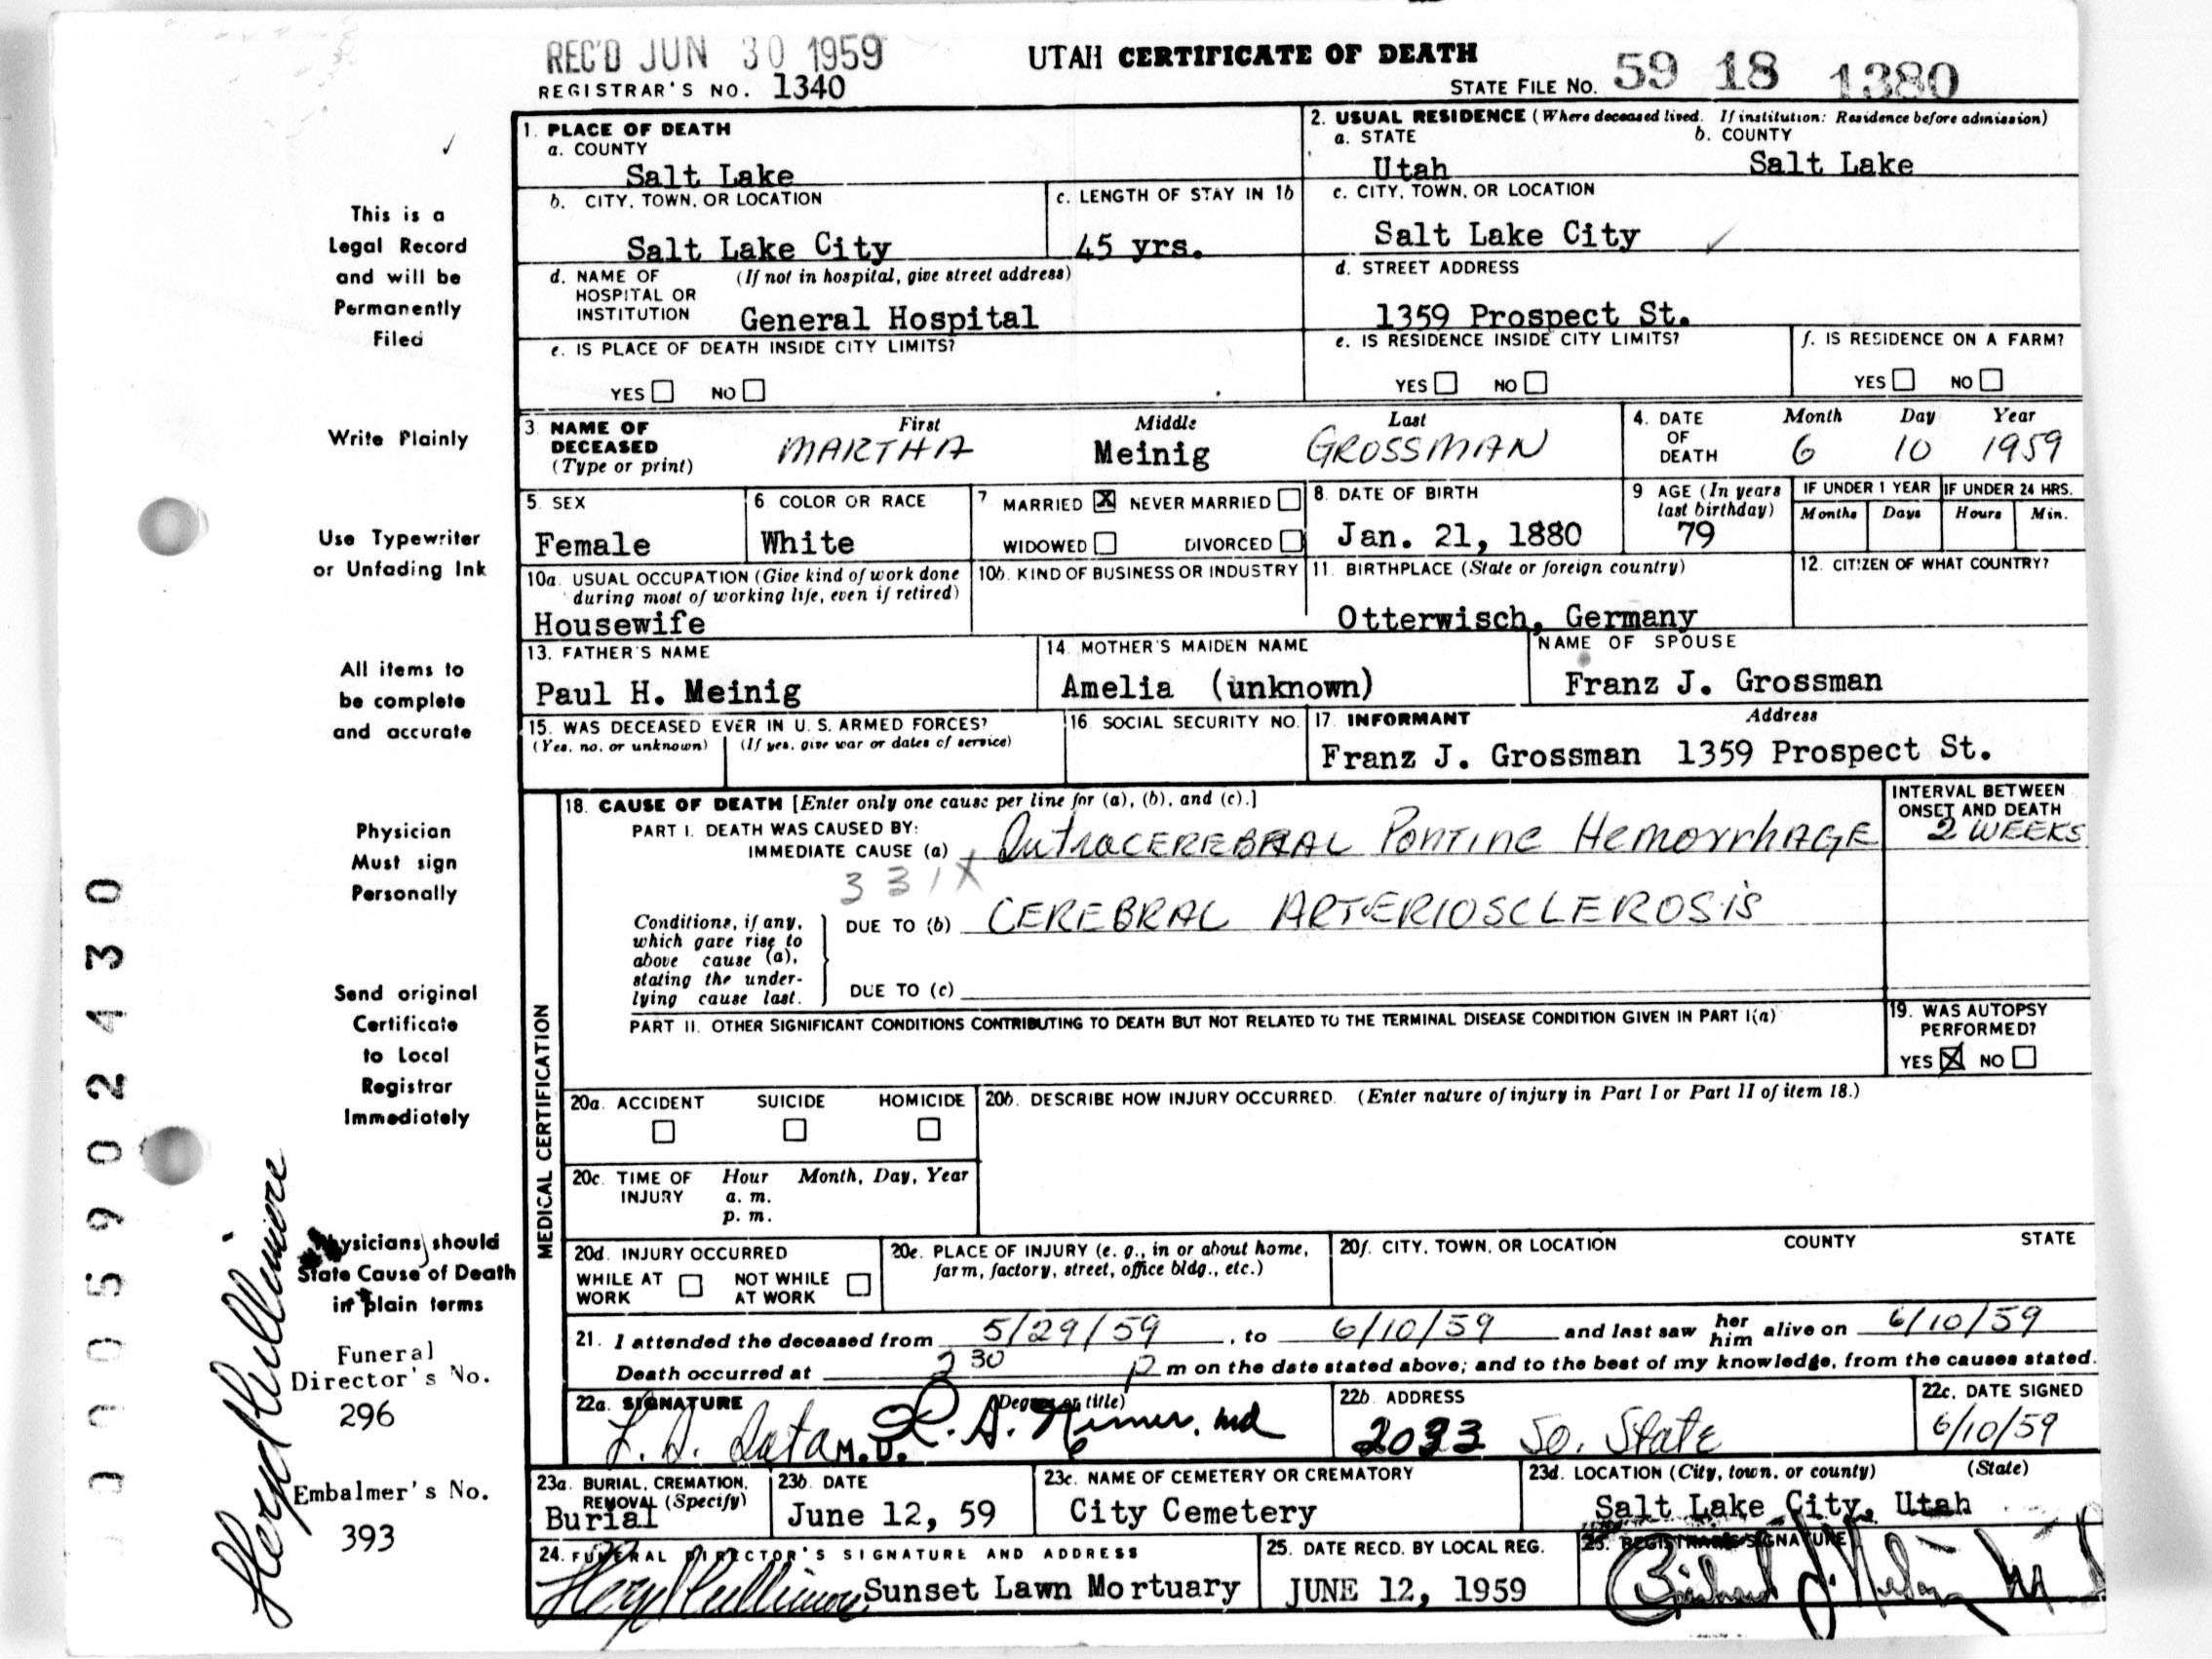 REC'D JUN 30 1959
UTAH CERTIFICATE OF DEATH
REGISTRAR'S NO. 1340
STATE FILE NO. 59 18 1380
This is a
Legal Record
and will be
Permanently
Filed
Write Plainly
Use Typewriter
or Unfading Ink
All items to
be complete
and accurate
Physician
Must sign
Personally
Send original
Certificate
to Local
Registrar
Immediately
Physicians should
State Cause of Death
in plain terms
Funeral
Director's No.
296
Embalmer's No.
393
1. PLACE OF DEATH
a. COUNTY
Salt Lake
2. USUAL RESIDENCE (Where deceased lived. If institution: Residence before admission)
a. STATE b. COUNTY
Utah Salt Lake
b. CITY, TOWN, OR LOCATION
Salt Lake City
c. LENGTH OF STAY IN 1b
45 yrs.
c. CITY, TOWN, OR LOCATION
Salt Lake City
d. NAME OF (If not in hospital, give street address)
HOSPITAL OR
INSTITUTION General Hospital
d. STREET ADDRESS
1359 Prospect St.
e. IS PLACE OF DEATH INSIDE CITY LIMITS?
YES NO
e. IS RESIDENCE INSIDE CITY LIMITS?
YES NO
f. IS RESIDENCE ON A FARM?
YES NO
3. NAME OF
DECEASED
(Type or print)
First Middle Last
MARTHA Meinig GROSSMAN
4. DATE
OF
DEATH
Month Day Year
6 10 1959
5. SEX
Female
6 COLOR OR RACE
White
7 MARRIED X NEVER MARRIED
WIDOWED DIVORCED
8. DATE OF BIRTH
Jan. 21, 1880
9 AGE (In years
last birthday)
79
IF UNDER 1 YEAR
Months Days
IF UNDER 24 HRS.
Hours Min.
10a. USUAL OCCUPATION (Give kind of work done
during most of working life, even if retired)
Housewife
10b. KIND OF BUSINESS OR INDUSTRY
11. BIRTHPLACE (State or foreign country)
Otterwisch, Germany
12. CITIZEN OF WHAT COUNTRY?
13. FATHER'S NAME
Paul H. Meinig
14. MOTHER'S MAIDEN NAME
Amelia (unknown)
NAME OF SPOUSE
Franz J. Grossman
15. WAS DECEASED EVER IN U. S. ARMED FORCES?
(Yes, no, or unknown) (If yes, give war or dates of service)
16. SOCIAL SECURITY NO.
17. INFORMANT Address
Franz J. Grossman 1359 Prospect St.
MEDICAL CERTIFICATION
18. CAUSE OF DEATH [Enter only one cause per line for (a), (b), and (c).]
PART I. DEATH WAS CAUSED BY:
IMMEDIATE CAUSE (a) IntraCEREBRAL PONTINE HemorrhAGE
INTERVAL BETWEEN
ONSET AND DEATH
2 WEEKS
331X
Conditions, if any,
which gave rise to
above cause (a),
stating the under-
lying cause last.
DUE TO (b) CEREBRAL ARTERIOSCLEROSIS
DUE TO (c)
PART II. OTHER SIGNIFICANT CONDITIONS CONTRIBUTING TO DEATH BUT NOT RELATED TO THE TERMINAL DISEASE CONDITION GIVEN IN PART I(a)
19. WAS AUTOPSY
PERFORMED?
YES X NO
20a. ACCIDENT SUICIDE HOMICIDE
20b. DESCRIBE HOW INJURY OCCURRED. (Enter nature of injury in Part I or Part II of item 18.)
20c. TIME OF Hour Month, Day, Year
INJURY a. m.
p. m.
20d. INJURY OCCURRED
WHILE AT NOT WHILE
WORK AT WORK
20e. PLACE OF INJURY (e. g., in or about home,
farm, factory, street, office bldg., etc.)
20f. CITY, TOWN, OR LOCATION COUNTY STATE
21. I attended the deceased from 5/29/59, to 6/10/59 and last saw her him alive on 6/10/59
Death occurred at 2 30 p m on the date stated above; and to the best of my knowledge, from the causes stated.
22a. SIGNATURE (Degree or title)
M.D. R. A. md
22b. ADDRESS
2033 So. State
22c. DATE SIGNED
6/10/59
23a. BURIAL, CREMATION,
REMOVAL (Specify)
Burial
23b. DATE
June 12, 59
23c. NAME OF CEMETERY OR CREMATORY
City Cemetery
23d. LOCATION (City, town, or county) (State)
Salt Lake City, Utah
24. FUNERAL DIRECTOR'S SIGNATURE AND ADDRESS
Sunset Lawn Mortuary
25. DATE RECD. BY LOCAL REG.
JUNE 12, 1959
REGISTRAR'S SIGNATURE
0005902430